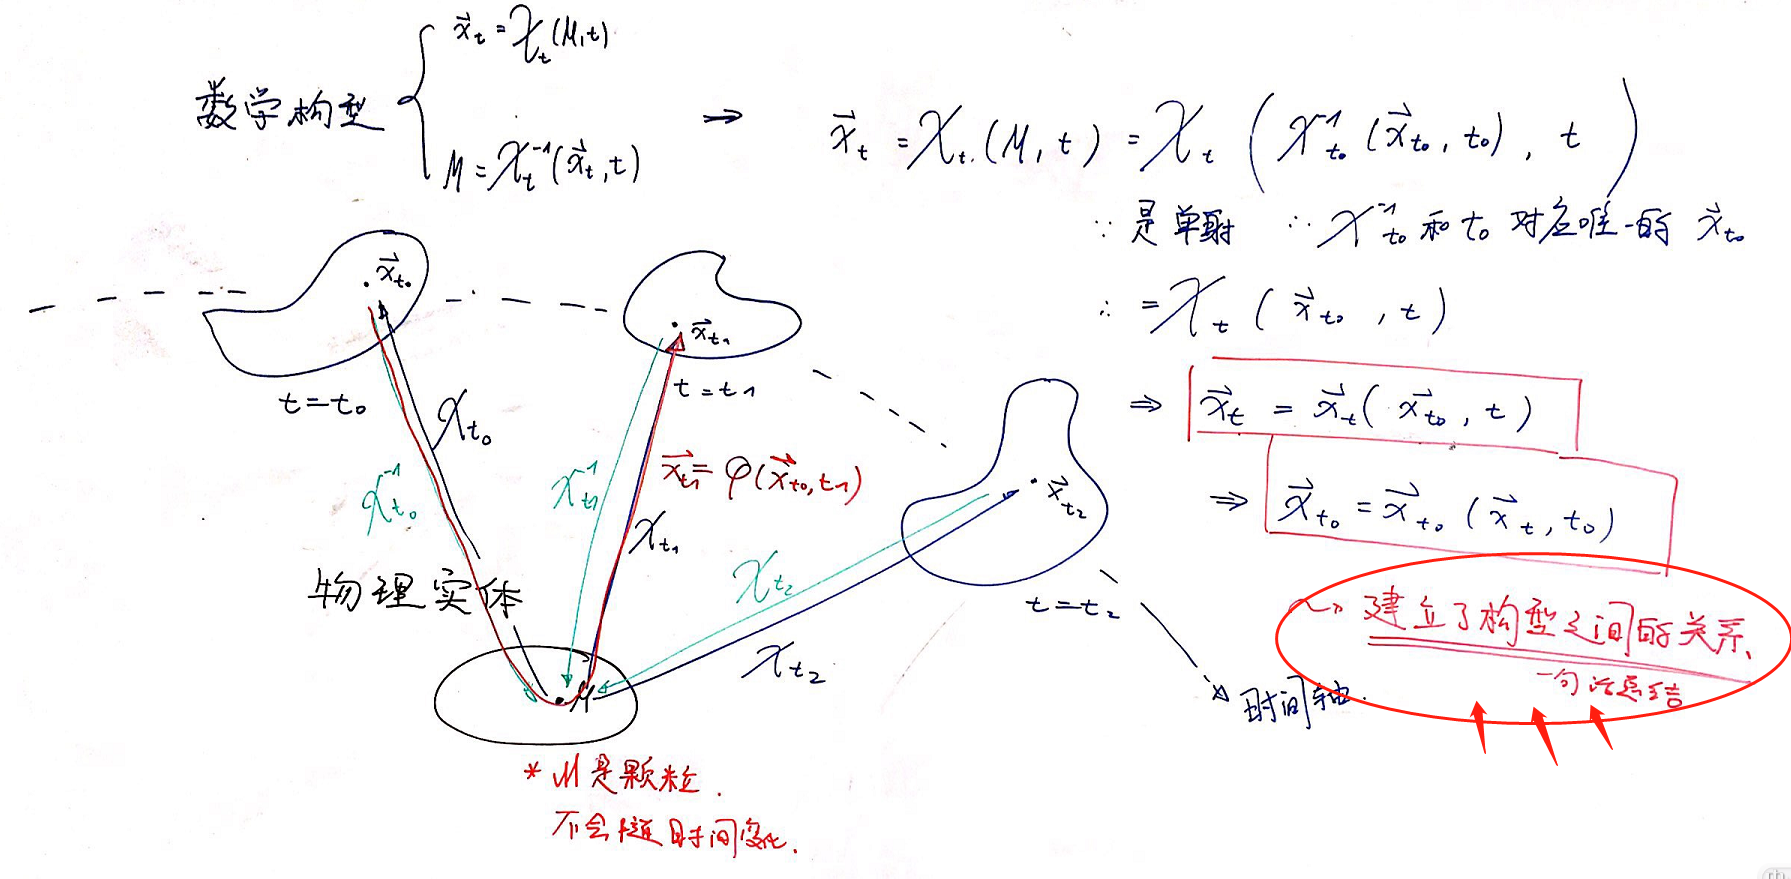 x⃗t = χt(M,t)
数学构型
M = χt⁻¹(x⃗t,t)
→ x⃗t = χt.(M,t) = χt(χt₀⁻¹(x⃗t₀,t₀),t)
∵是单射 ∴χt₀⁻¹和t₀对应唯一的x⃗t₀
∴ = χt(x⃗t₀,t)
⇒ x⃗t = x⃗t(x⃗t₀,t)
⇒ x⃗t₀ = x⃗t₀(x⃗t,t₀)
⇝建立了构型之间的关系、
一句话总结
x⃗t₀
t=t₀
χt₀
χt₀⁻¹
x⃗t₁
t=t₁
x⃗t₁=φ(x⃗t₀,t₁)
χt₁⁻¹
χt₁
x⃗t₂
t=t₂
χt₂
χt₂
时间轴.
物理实体
M
*M是颗粒.
不会随时间变化.